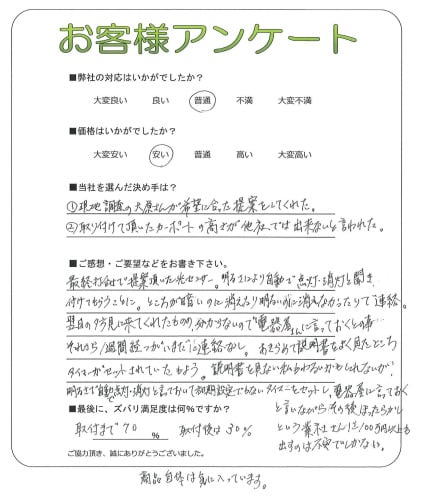 お客様アンケート
■弊社の対応はいかがでしたか？
大変良い 良い 普通 不満 大変不満
■価格はいかがでしたか？
大変安い 安い 普通 高い 大変高い
■当社を選んだ決め手は？
①現地調査の大原さんが希望に合った提案をしてくれた。
②取り付けて頂いたカーポートの高さが他社では出来ないと言われた。
■ご感想・ご要望などをお書き下さい。
最終打合せで提案頂いた光センサー。明るさにより自動で点灯・消灯と聞き
付けてもらうことに。ところが暗いのに消えたり明るいのに消えなかったりで連絡。
翌日の夕方見に来てくれたものの、分からないので"電器屋さんに言っておくとの事…
それから1週間経つがいまだに連絡なし。あきらめて説明書をよく見たところ
タイマーがセットされていたもよう。説明書を見ない私もわるいかもしれないが
明るさで自動点灯・消灯と言っておいて初期設定でもないタイマーをセットし、電器屋に言っておく
と言いながらその後ほったらかし
という業社さんに100万円以上も
出すのは不安でしかない。
■最後に、ズバリ満足度は何%ですか？
取付まで70 % 取付後は30%
ご協力頂き、誠にありがとうございました。
商品自体は気に入っています。